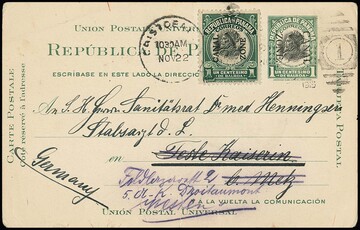 UNION POSTAL UNIVERSAL
REPÚBLICA DE
ESCRÍBASE EN ESTE LADO LA DIRECCIÓN
CARTE POSTALE
Côté réservé à l'adresse
CRISTOBAL
1030AM
NOV 22
REPUBLICA DE PANAMA
CANAL ZONE
UN CENTESIMO
DE BALBOA
REPUBLICA DE PANAMA
CANAL ZONE
UN CENTESIMO
DE BALBOA
1
An S. K. Herrn Sanitätsrat Dr med Henningsen
Stabsarzt d. L.
Germany
Feste Kaiserin
b. Metz
A LA VUELTA LA COMUNICACIÓN
UNION POSTAL UNIVERSAL